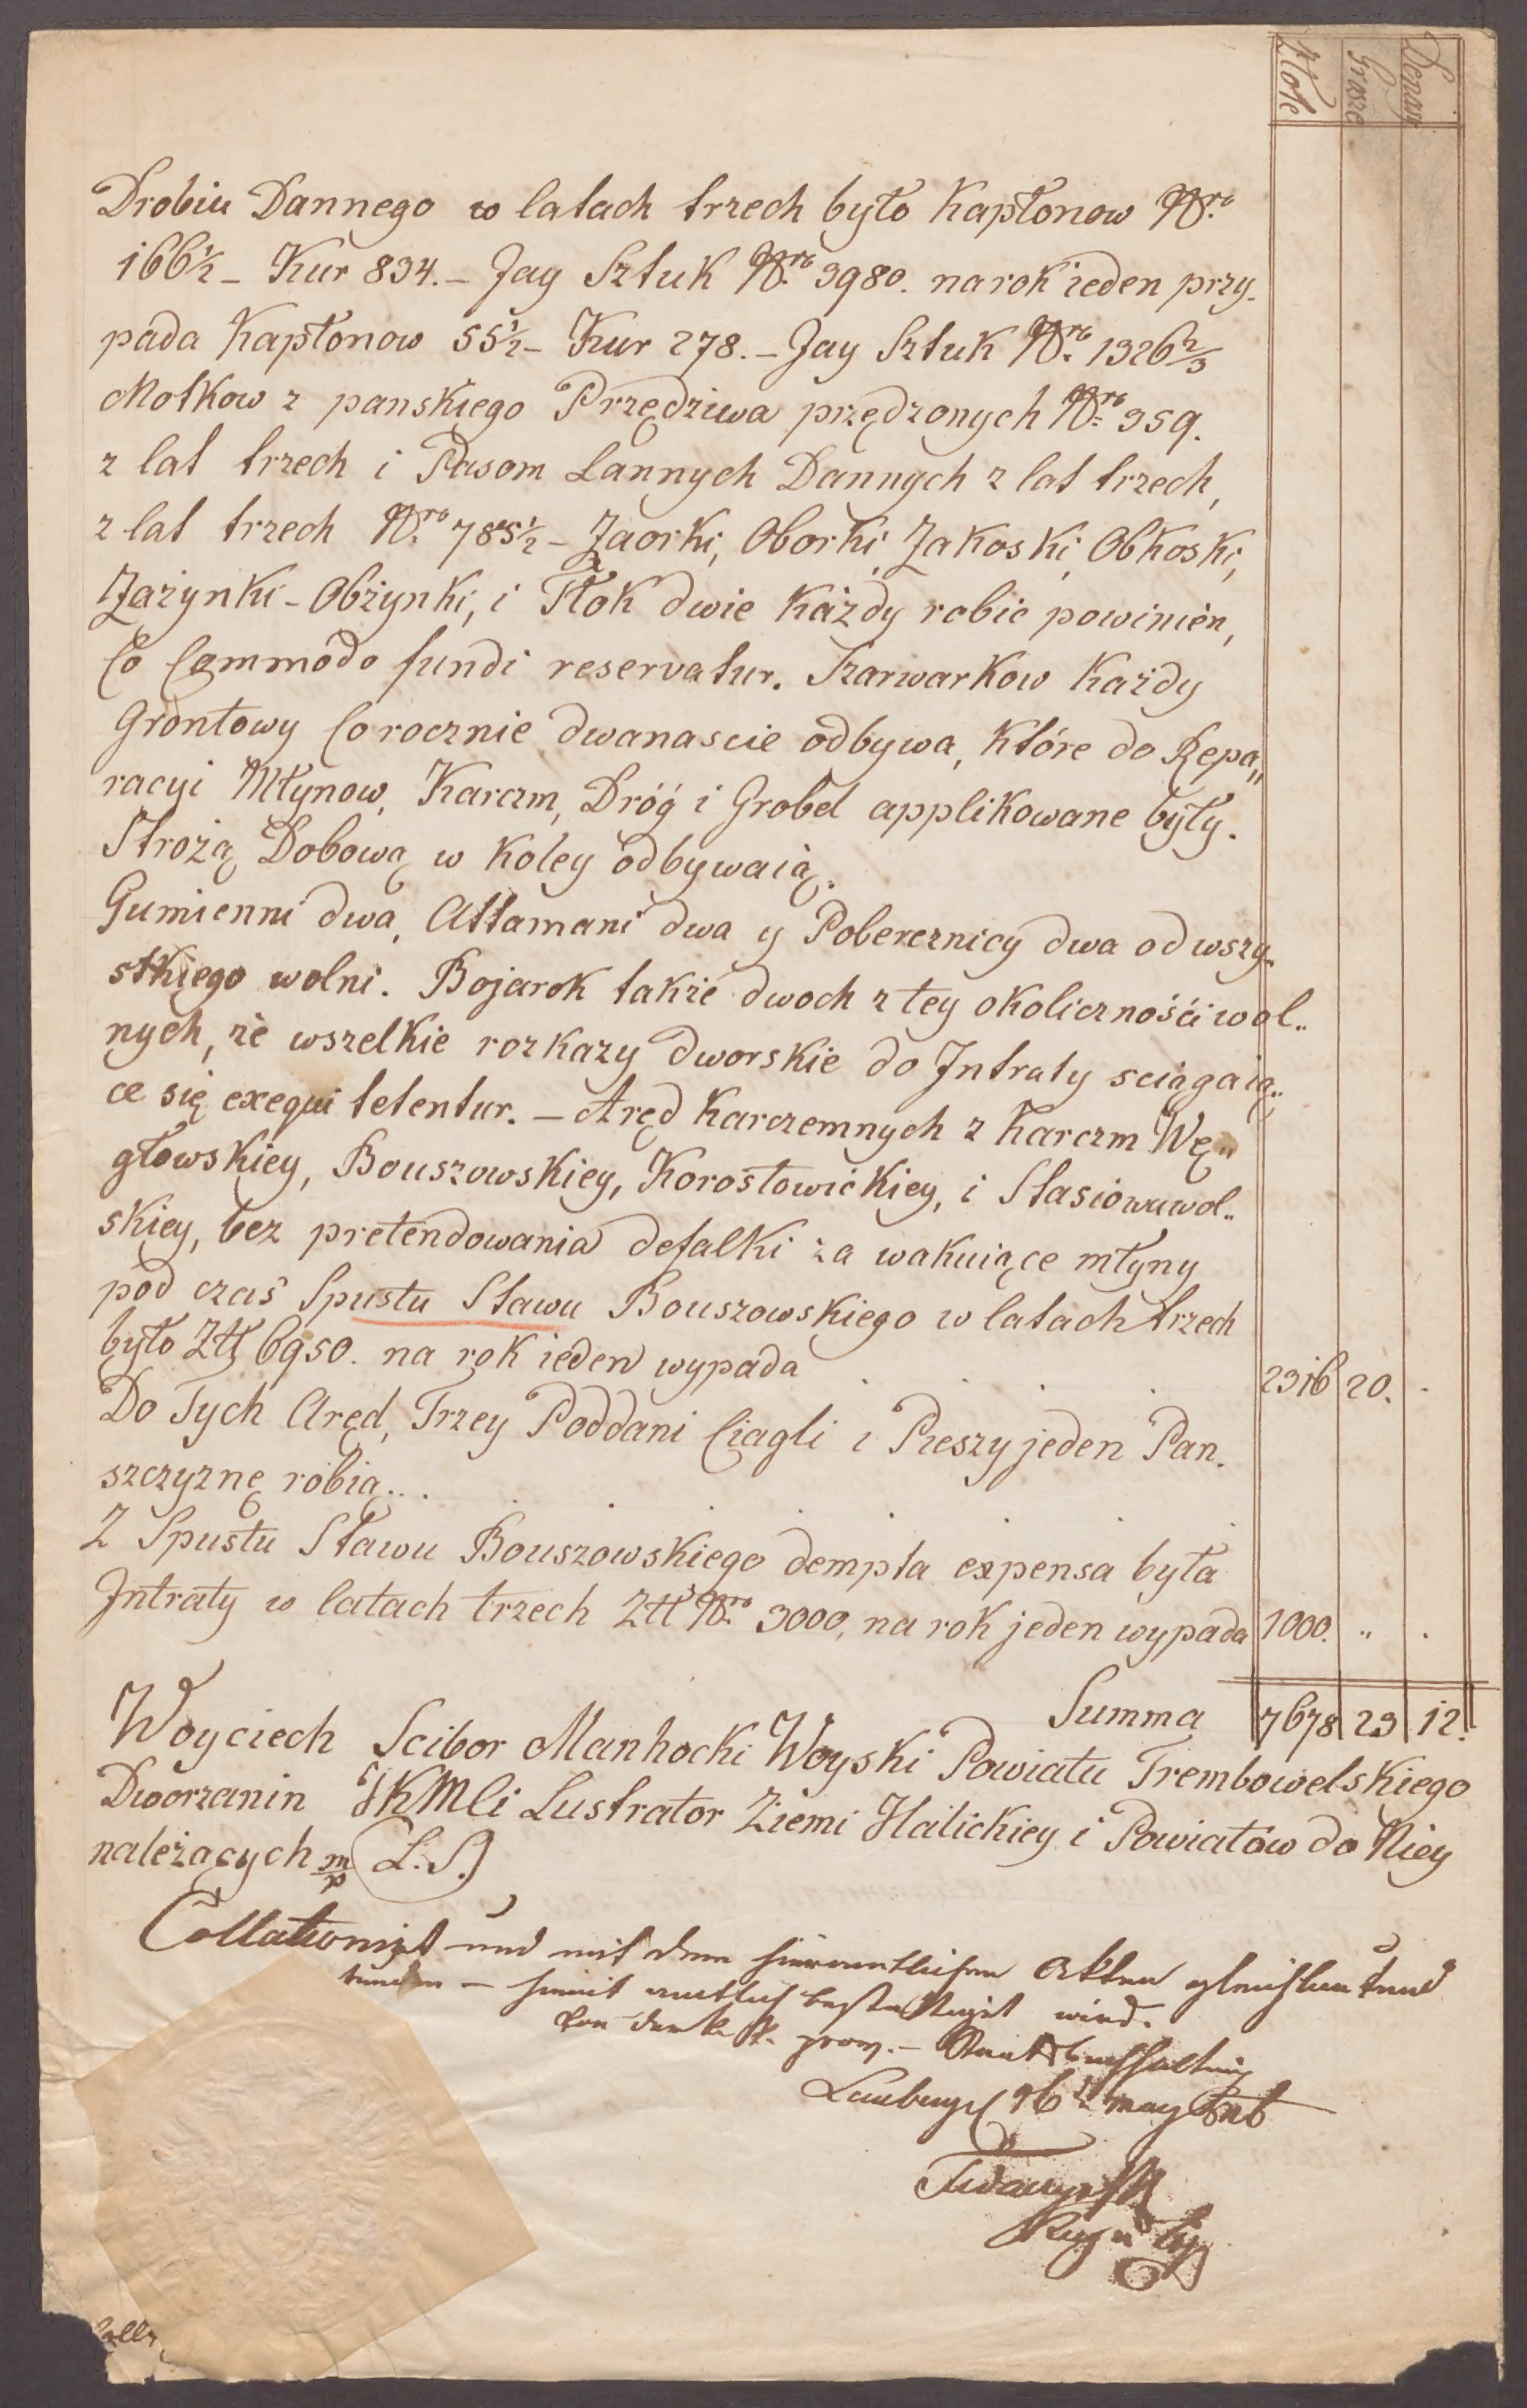 Złote Grosze Denary
Drobiu Dannego w latach trzech było Kapłonow Nro
166½ – Kur 834. – Jay Sztuk Nro 3980. na rok ieden przy-
pada Kapłonow 55½ – Kur 278. – Jay Sztuk Nro 1326⅔
Motkow z panskiego Przędziwa przędzonych Nro 359.
z lat trzech i Pasom Lannych Dannych z lat trzech,
z lat trzech Nro 785½ – Zaorki, Oborki, Zakoski, Obkoski,
Zażynki – Obżynki, i Tłok dwie każdy robić powinien,
Co Commodo fundi reservatur. Szarwarkow każdy
Grontowy Corocznie dwanascie odbywa, które do Repa„
racyi Młynow, Karczm, Dróg i Grobel applikowane były.
Strożą Dobową w koley odbywaią.
Gumienni dwa, Attamani dwa y Pobereznicy dwa od wszy-
stkiego wolni. Bojarok także dwoch z tey okolicznośći wol„
nych, że wszelkie rozkazy dworskie do Intraty sciągaią„
ce się exequi tetentur. – Aręd Karczemnych z Karczm Wę„
głowskiey, Bouszowskiey, Korostowickiey, i Stasiowawol„
skiey, bez pretendowania defalki za wakuiące młyny
pod czas Spustu Stawu Bouszowskiego w latach trzech
było Ztł 6950. na rok ieden wypada . . . 2316 20. -
Do Tych Aręd, Trzey Poddani Ciągli i Pieszy jeden Pan-
szczyznę robią...
Z Spustu Stawu Bouszowskiego dempta expensa była
Intraty w latach trzech Ztł Nro 3000, na rok jeden wypada 1000. „ .
Summa 7678 23 12.
Woyciech Scibor Marchocki Woyski Powiatu Trembowelskiego
Dworzanin JKMCi Lustrator Ziemi Halickiey i Powiatów do Niey
należących mp (L.S.)
Collationirt und mit dem hieramtlichen Akten gleichlautend
funden – hiemit amtlich bestättigt wird.
Von der k. k. prov. – Staatsbuchhaltung
Lemberg 16t May